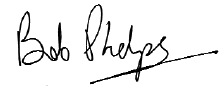 Bob Phelps